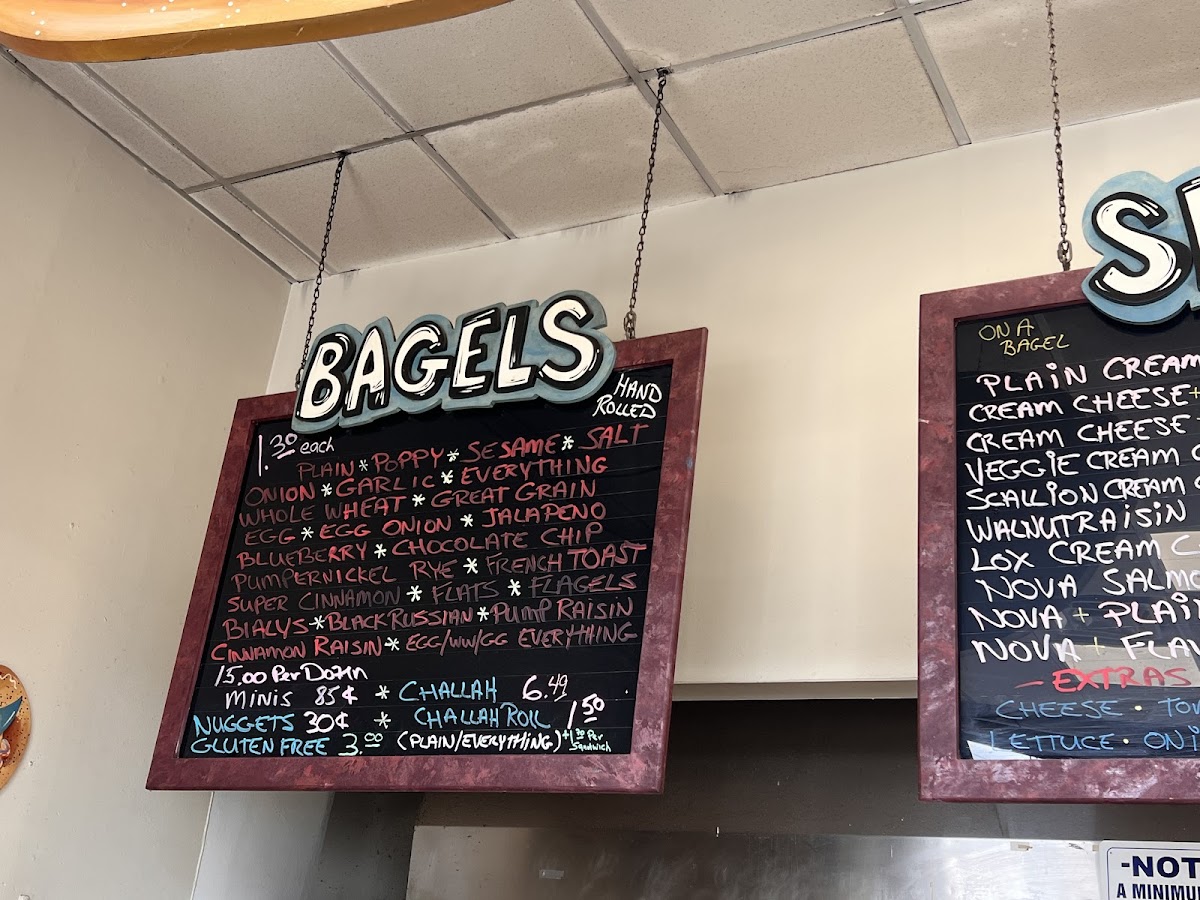 BAGELS
HAND
ROLLED
1.30 each
PLAIN * POPPY * SESAME * SALT
ONION * GARLIC * EVERYTHING
WHOLE WHEAT * GREAT GRAIN
EGG * EGG ONION * JALAPENO
BLUEBERRY * CHOCOLATE CHIP
PUMPERNICKEL RYE * FRENCH TOAST
SUPER CINNAMON * FLATS * FLAGELS
BIALYS * BLACK RUSSIAN * PUMP RAISIN
CINNAMON RAISIN * EGG/WW/GG EVERYTHING
15.00 Per DOZEN
MINIS 85¢ * CHALLAH 6.49
NUGGETS 30¢ * CHALLAH ROLL 1.50
GLUTEN FREE 3.00 (PLAIN/EVERYTHING) +1.30 Per Sandwich
S
ON A
BAGEL
PLAIN CREAM
CREAM CHEESE +
CREAM CHEESE
VEGGIE CREAM C
SCALLION CREAM
WALNUT RAISIN
LOX CREAM C
NOVA SALMO
NOVA + PLAIN
NOVA + FLAV
- EXTRAS
CHEESE • TO
LETTUCE • ONI
-NOT
A MINIMU